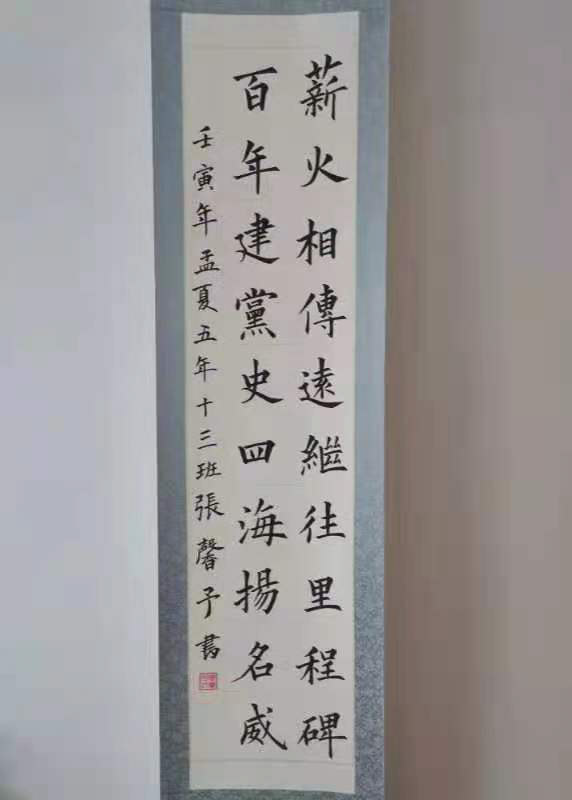 薪火相傳遠繼往里程碑
百年建黨史四海揚名威
壬寅年孟夏五年十三班張馨予書